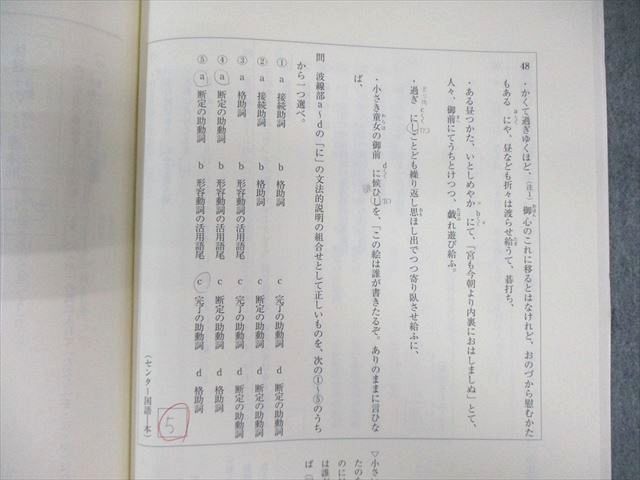 48
・かくて過ぎゆくほど、（注1）御心のこれに移るとはなけれど、おのづから慰むかた
もあるにや、昼なども折々は渡らせ給うて、碁打ち、
・ある昼つかた、いとしめやかにて、「宮も今朝より内裏におはしましぬ」とて、
人々、御前にてうちとけつつ、戯れ遊び給ふ。
・過ぎにしことども繰り返し思ほし出でつつ寄り臥させ給ふに、
・小さき童女の御前に候ひしを、「この絵は誰が書きたるぞ。ありのままに言ひな
ば、
問　波線部a～dの「に」の文法的説明の組合せとして正しいものを、次の①～⑤のうち
から一つ選べ。
① a 接続助詞　b 格助詞　c 完了の助動詞　d 断定の助動詞
② a 接続助詞　b 格助詞　c 断定の助動詞　d 断定の助動詞
③ a 格助詞　b 形容動詞の活用語尾　c 完了の助動詞　d 断定の助動詞
④ a 断定の助動詞　b 形容動詞の活用語尾　c 断定の助動詞　d 格助詞
⑤ a 断定の助動詞　b 形容動詞の活用語尾　c 完了の助動詞　d 格助詞
（センター国語Ⅰ本）
5
▽小さ
たのを
のに
は誰が
ば